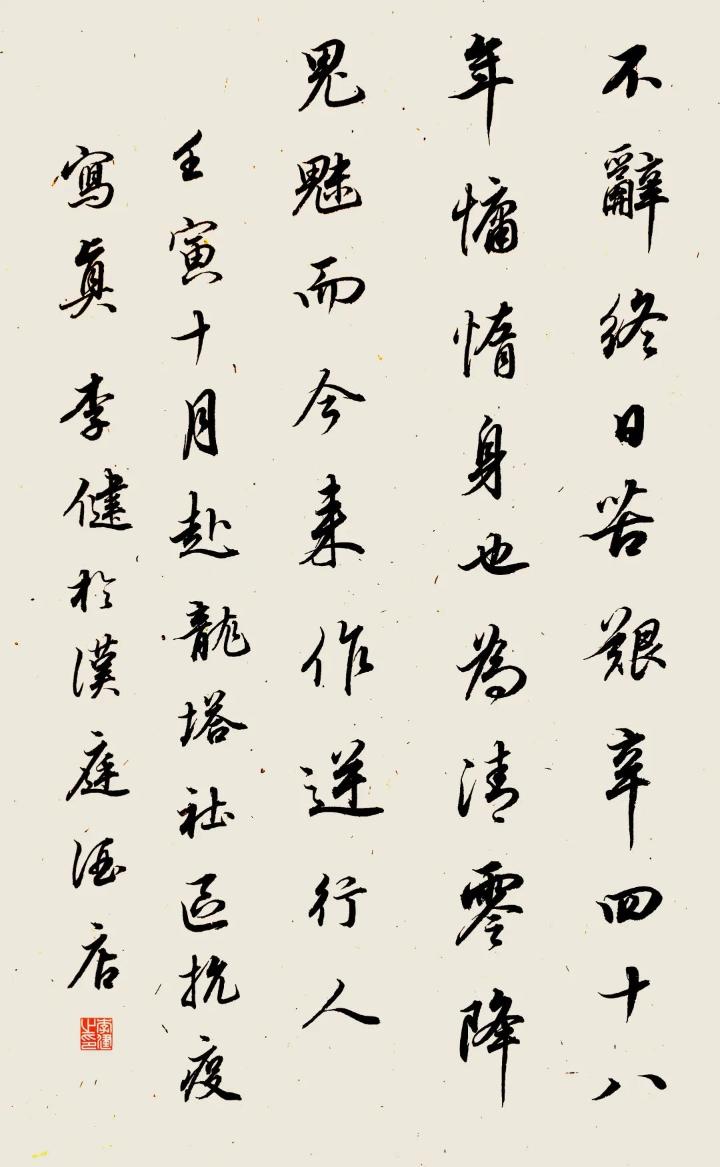 不辭終日苦艱辛四十八
年慵惰身也為清零降
鬼魅而今来作逆行人
壬寅十月赴龍塔社區抗疫
寫真 李健於漢庭酒店
李健之印